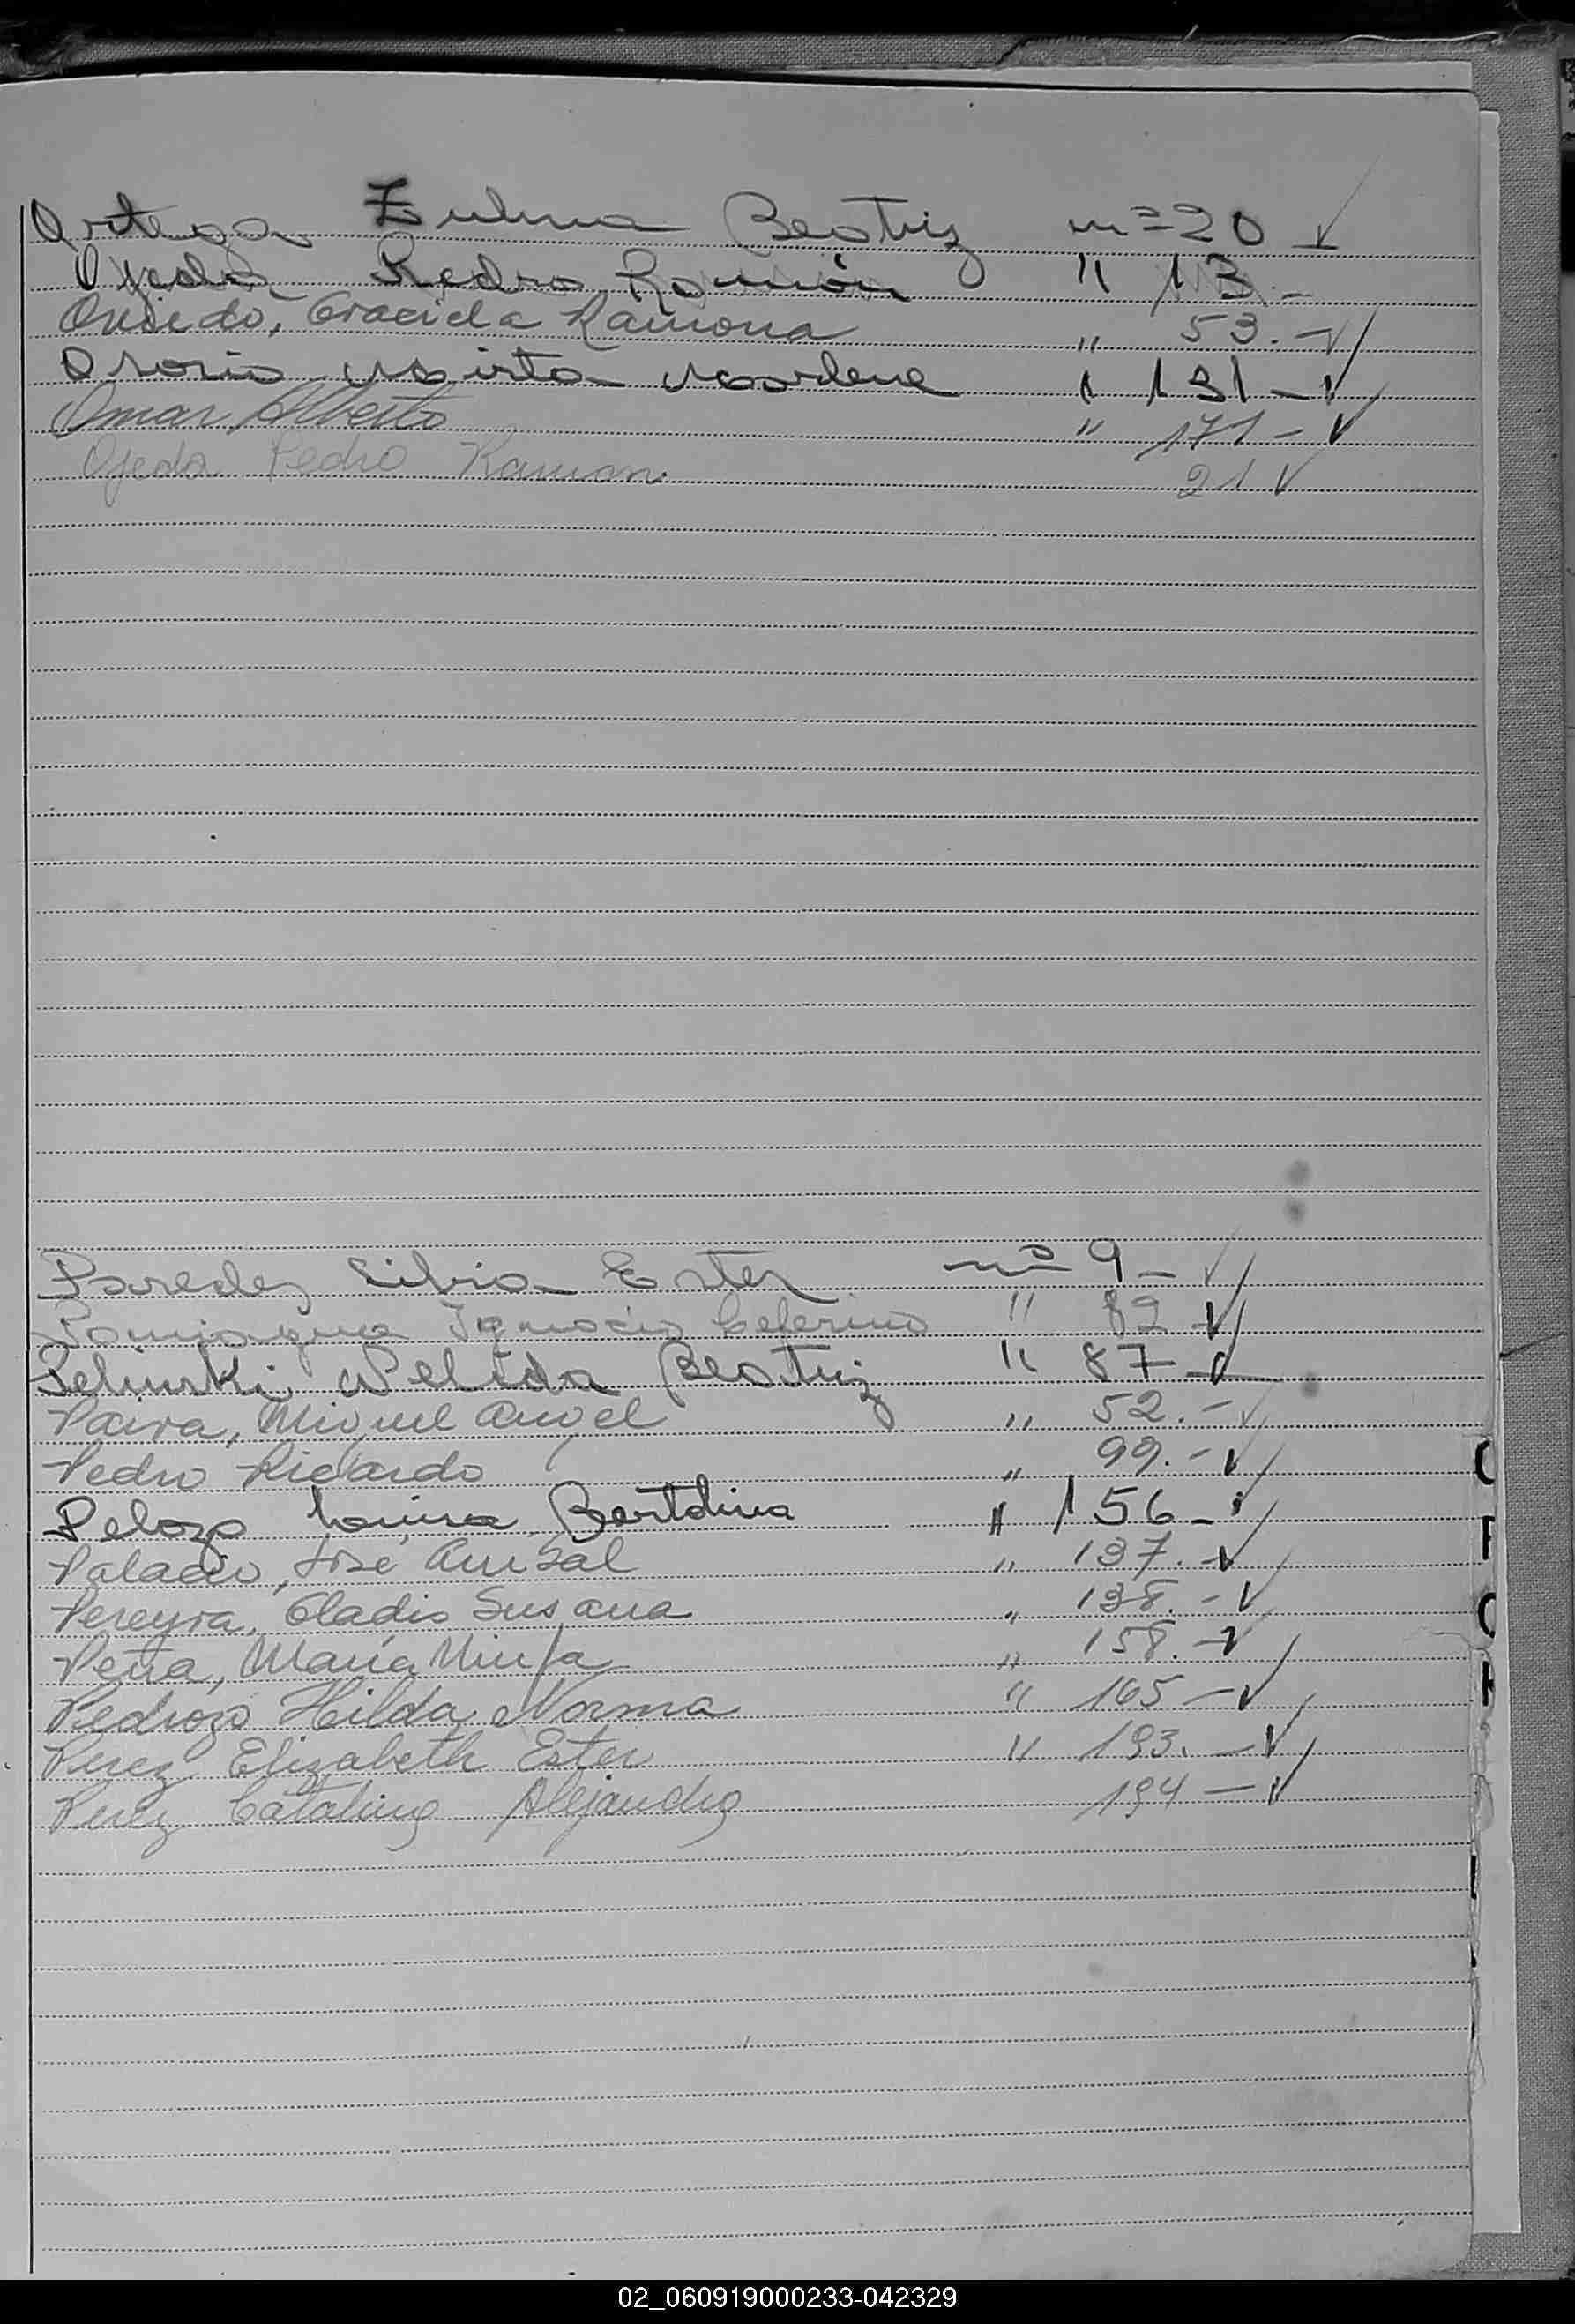 Ortega Zulma Beatriz nº 20
Ojeda Pedro Ramón " 13.-
Oviedo, Graciela Ramona " 53.-
Osorio Mirta Marlene " 131-
Omar Alberto " 171-
Ojeda Pedro Ramon. 21
Paredes Silvia Ester nº 9-
Paniagua Ignacio Ceferino " 82
Pelinski Nelida Beatriz " 87-
Paiva, Miguel Angel " 52.-
Pedro Ricardo " 99.-
Pelozo Bertolina " 156-
Palacio, José Anibal " 137.-
Pereyra, Gladis Susana " 138.-
Peña, María Mirta " 158.-
Pedrozo Hilda Norma " 165-
Perez Elizabeth Ester " 193.-
Perez Catalina Alejandra 194-
02_060919000233-042329